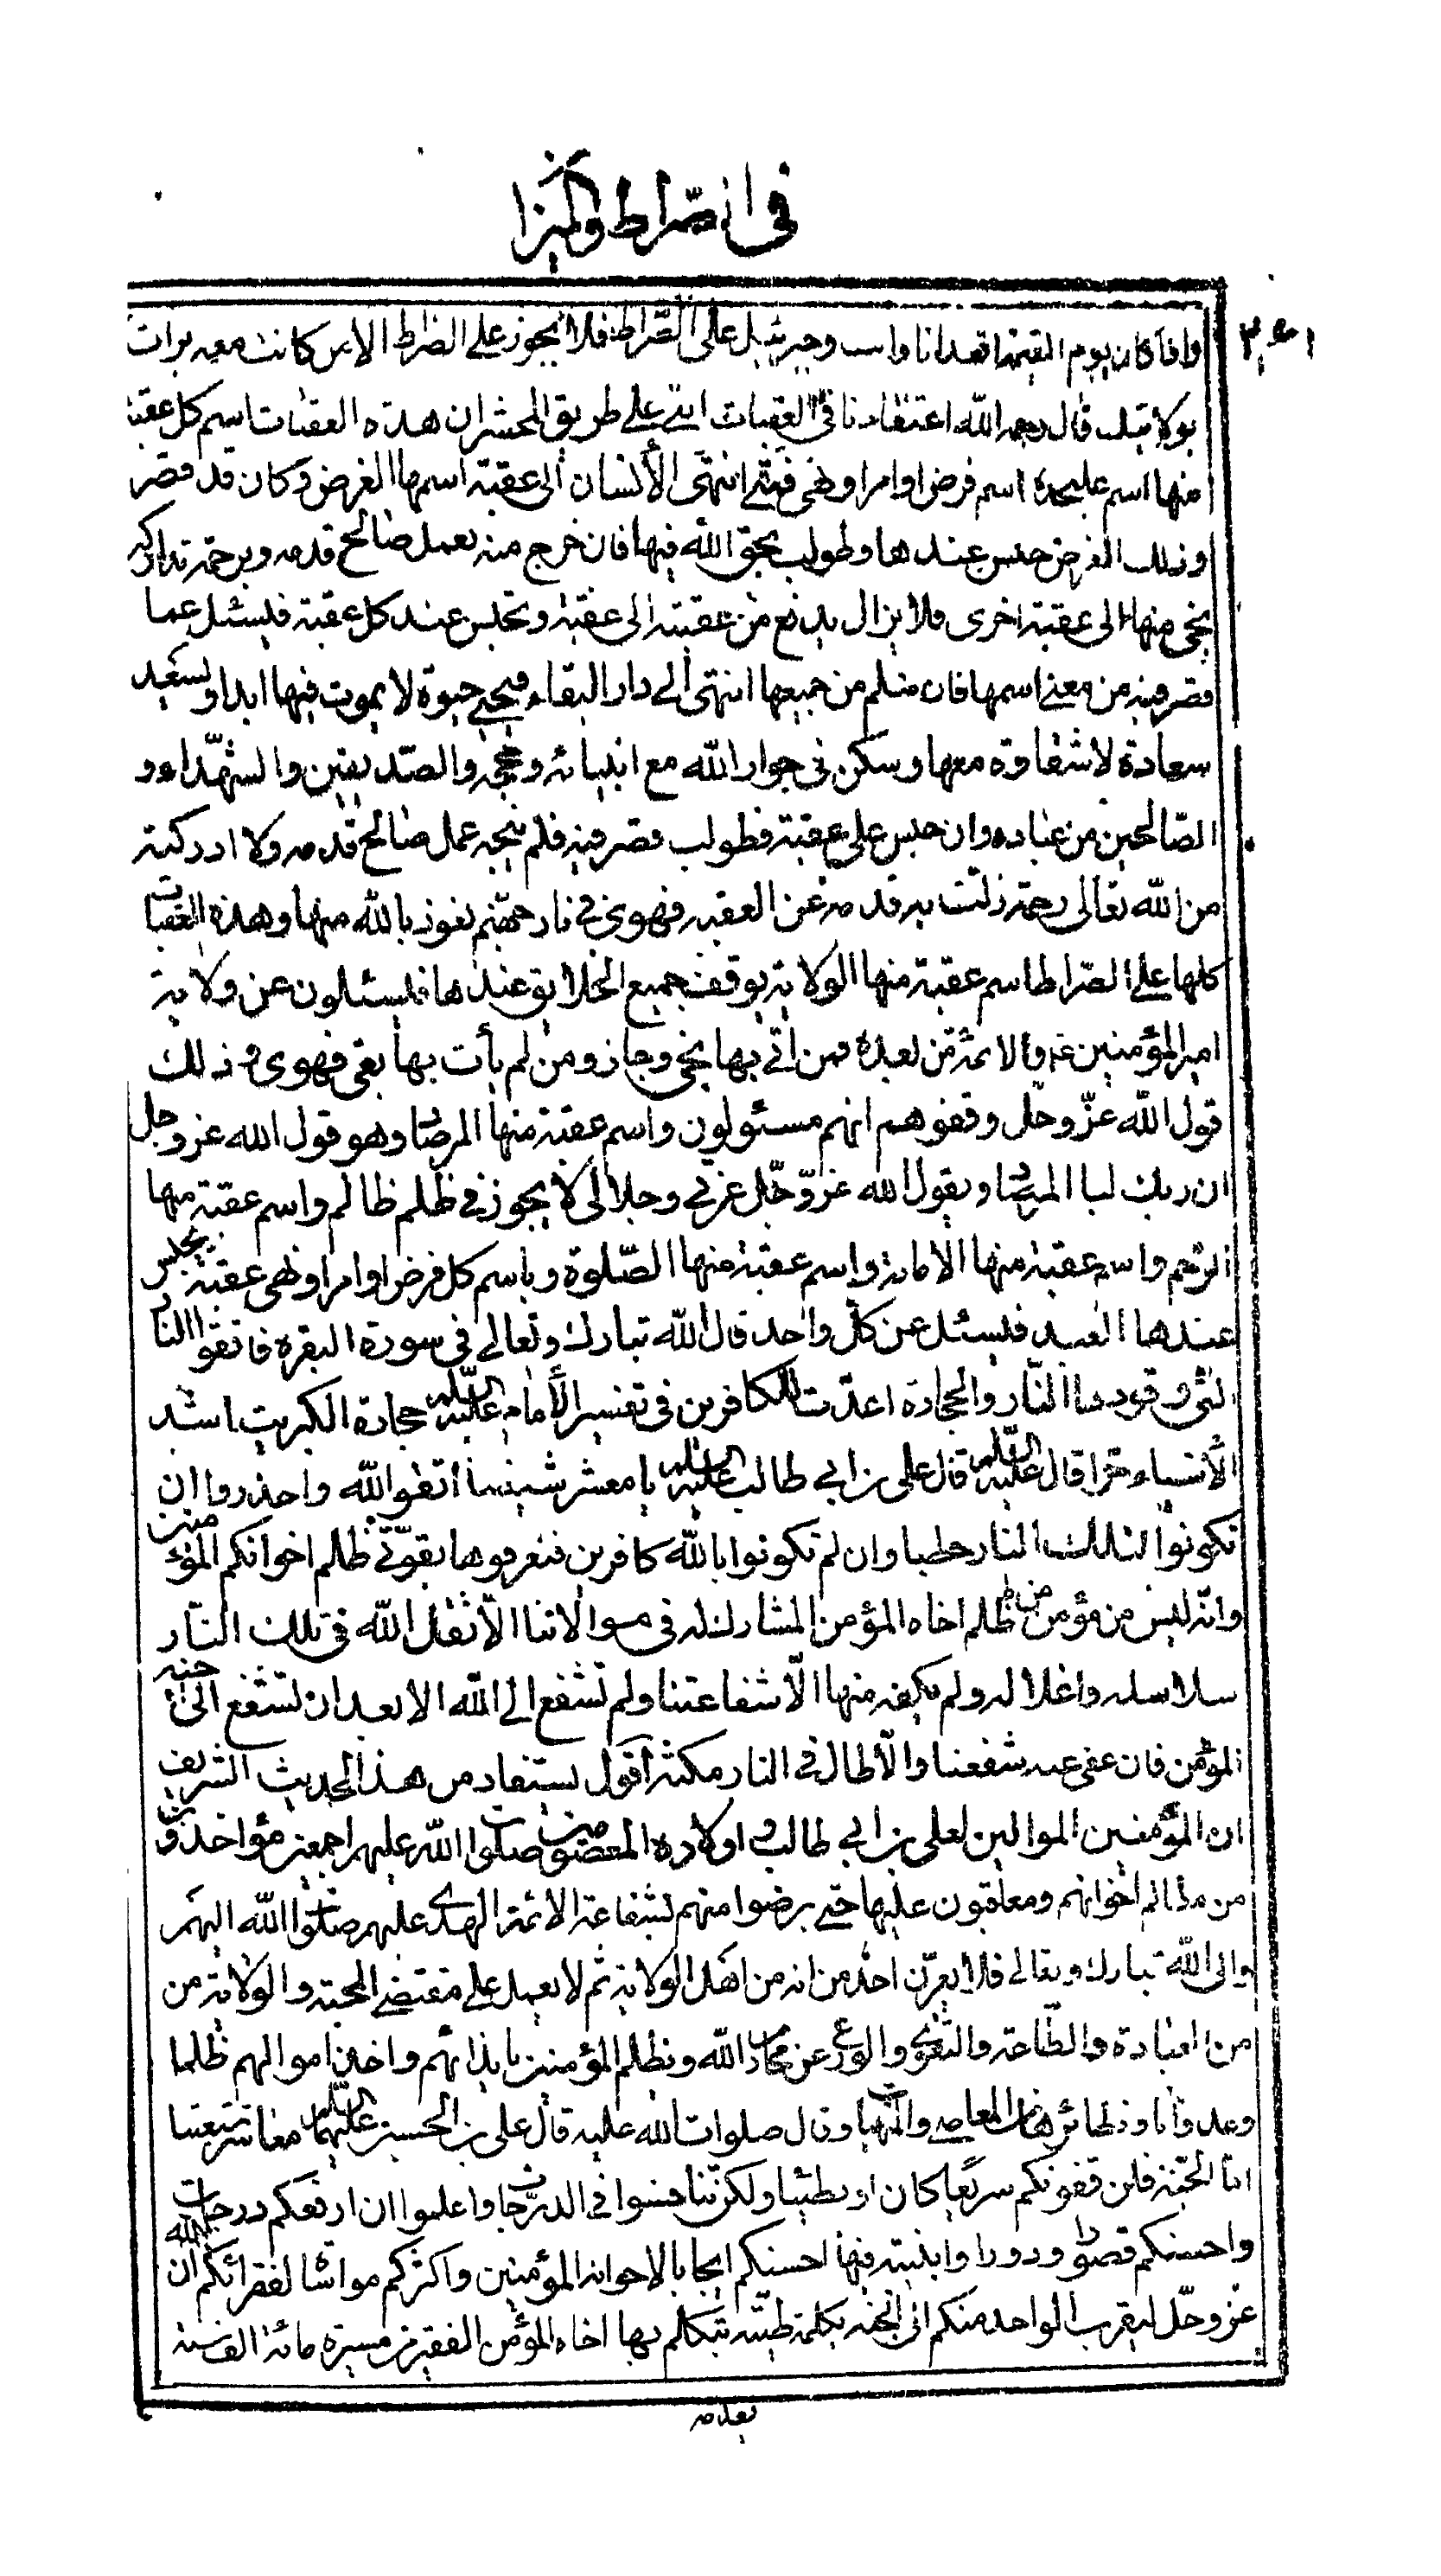 في الصراط والميزا
٣٠١
واذا كان يوم القيمة اقعد انا وانت وجبرئيل على الصراط فلا يجوز على الصراط الا من كانت معه براة
بولايتك قال رحمه الله اعتقادنا في العقبات التي على طريق المحشر ان هذه العقبات اسم كل عقبة
منها اسم عليحدة اسم فرض او امر او نهي فمتى انتهى الأنسان الى عقبة اسمها الفرض وكان قد قصر
في ذلك الفرض حبس عندها وطولب بحق الله فيها فان خرج منه بعمل صالح قدمه وبرحمة تداركه
نجى منها الى عقبة اخرى فلا يزال يدفع من عقبة الى عقبة ويحبس عند كل عقبة فيسئل عما
قصر فيه من معنى اسمها فان سلم من جميعها انتهى الى دار البقاء فيحيى حيوة لا يموت فيها ابدا ويسعد
سعادة لا شقاوة معها وسكن في جوار الله مع انبيائه وحججه والصديقين والشهداء و
الصالحين من عباده وان حبس على عقبة فطولب قصر فيه فلم ينجه عمل صالح قدمه ولا ادركته
من الله تعالى رحمة زلت به قدمه عن العقبة فهوى في نار جهنم نعوذ بالله منها وهذه العقبات
كلها على الصراط اسم عقبة منها الولاية يوقف جميع الخلايق عندها فيسئلون عن ولاية
امير المؤمنين ع والائمة من بعده فمن اتى بها نجى وجاز ومن لم يأت بها بقى فهوى وذلك
قول الله عز وجل وقفوهم انهم مسئولون واسم عقبة منها المرصاد وهو قول الله عز وجل
ان ربك لبا المرصاد ويقول الله عز وجل عزتي وجلالى لا يجوزني ظلم ظالم واسم عقبة منها
الرحم واسم عقبة منها الامانة واسم عقبة منها الصلوة وباسم كل فرض او امر او نهي عقبة يحبس
عندها العبد فيسئل عن كل واحد قال الله تبارك وتعالى في سورة البقرة فاتقوا النار
التي وقودها النار والحجارة اعدت للكافرين في تفسير الأمام عليه السلام حجارة الكبريت اشد
الأشياء حرا قال عليه السلام قال على بن ابي طالب عليه السلام يا معشر شيعتنا اتقوا الله واحذروا ان
تكونوا لتلك النار حطبا وان لم تكونوا بالله كافرين فتعرفوها بتوقي ظلم اخوانكم المؤمنين
وانه ليس من مؤمن ظلم اخاه المؤمن المشارك له في موالاتنا الا ثقل الله في تلك النار
سلاسله واغلاله ولم يكفه منها الا شفاعتنا ولم نشفع الى الله الا بعد ان نشفع الى اخيه
المؤمن فان عفى عنه شفعنا والا طال في النار مكثه اقول يستفاد من هذا الحديث الشريف
ان المؤمنين الموالين لعلى بن ابي طالب واولاده المعصومين صلوات الله عليهم اجمعين مؤاخذون
من مظالم اخوانهم ومعاقبون عليها حتى يرضوا منهم بشفاعة الائمة الهدى عليهم صلوات الله اليهم
والى الله تبارك وتعالى فلا يغرن احد من انه من اهل الولاية ثم لا يعمل على مقتضى المحبة والولاية من
من العبادة والطاعة والتقوى والورع عن محارم الله ويظلم المؤمنين بايذائهم واخذ اموالهم ظلما
وعدوانا ونظائر هذه المعاصي وقال صلوات الله عليه قال على بن الحسين عليهما السلام معاشر شيعتنا
اما الجنة فلن تفوتكم سريعا كان او بطيئا ولكن تنافسوا في الدرجات واعلموا ان ارفعكم درجات
واحسنكم قصورا ودورا وابنية فيها احسنكم ايجابا لاخوانه المؤمنين واكثركم مواساة لفقرائكم ان الله
عز وجل ليقرب الواحد منكم الى الجنة بكلمة طيبة يتكلم بها اخاه المؤمن الفقير من مسيرة مائة الف سنة
بقدمه